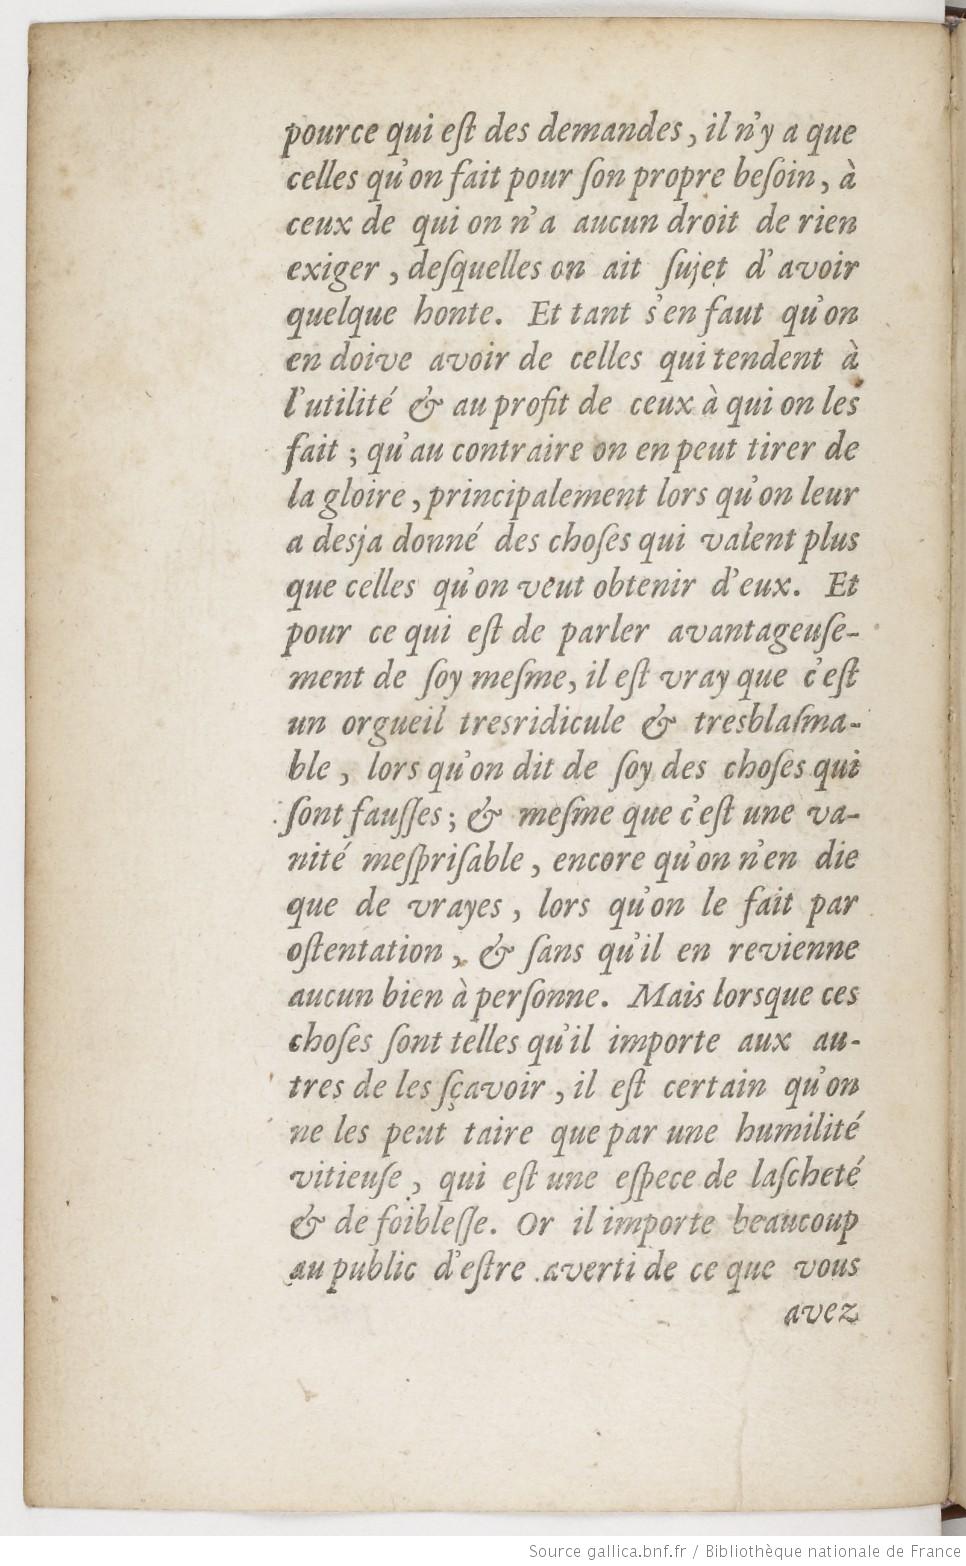 pource qui eſt des demandes, il n'y a que
celles qu'on fait pour ſon propre beſoin, à
ceux de qui on n'a aucun droit de rien
exiger, deſquelles on ait ſujet d'avoir
quelque honte. Et tant s'en faut qu'on
en doive avoir de celles qui tendent à
l'utilité & au profit de ceux à qui on les
fait; qu'au contraire on en peut tirer de
la gloire, principalement lors qu'on leur
a desja donné des choſes qui valent plus
que celles qu'on veut obtenir d'eux. Et
pour ce qui eſt de parler avantageuſe-
ment de ſoy meſme, il eſt vray que c'eſt
un orgueil tresridicule & tresblaſma-
ble, lors qu'on dit de ſoy des choſes qui
ſont fauſſes; & meſme que c'eſt une va-
nité meſpriſable, encore qu'on n'en die
que de vrayes, lors qu'on le fait par
oſtentation, & ſans qu'il en revienne
aucun bien à perſonne. Mais lorsque ces
choſes ſont telles qu'il importe aux au-
tres de les ſçavoir, il eſt certain qu'on
ne les peut taire que par une humilité
vitieuſe, qui eſt une eſpece de laſcheté
& de foibleſſe. Or il importe beaucoup
au public d'eſtre averti de ce que vous
avez
Source gallica.bnf.fr / Bibliothèque nationale de France